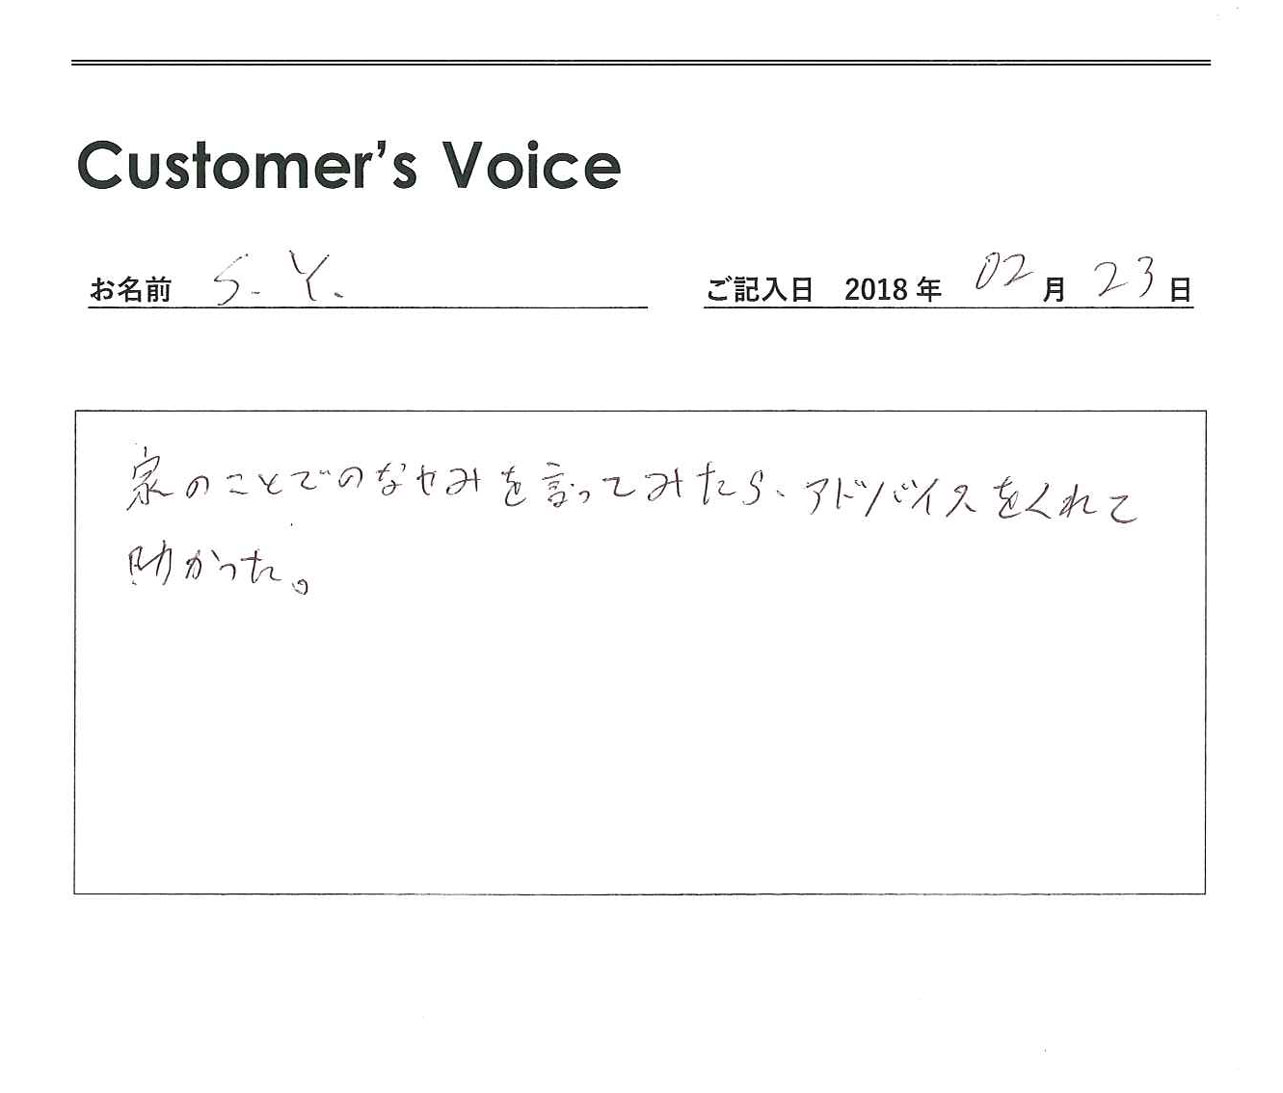 Customer's Voice
お名前 S. Y. ご記入日 2018 年 02 月 23 日
家のことでのなやみを言ってみたら、アドバイスをくれて
助かった。